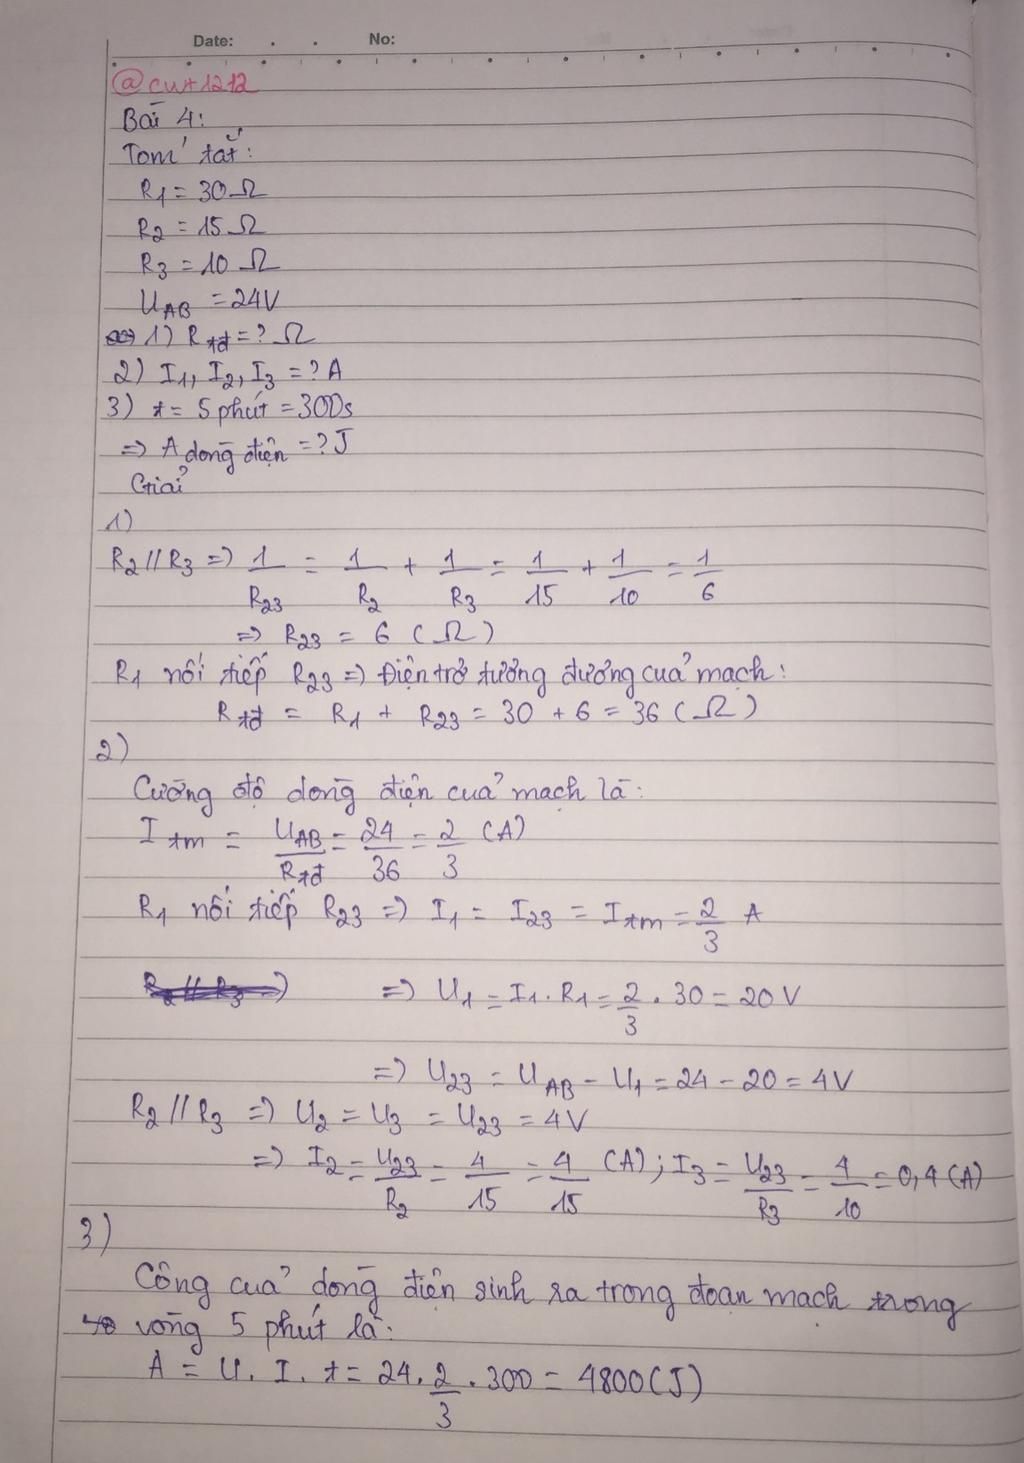 Date: . . No:
@cut1212
Bài 4:
Tóm tắt:
R1 = 30Ω
R2 = 15Ω
R3 = 10Ω
UAB = 24V
1) Rtđ = ? Ω
2) I1, I2, I3 = ? A
3) t = 5 phút = 300s
=> A dòng điện = ? J
Giải
1)
R2 // R3 => 1/R23 = 1/R2 + 1/R3 = 1/15 + 1/10 = 1/6
=> R23 = 6 (Ω)
R1 nối tiếp R23 => Điện trở tương đương của mạch:
Rtđ = R1 + R23 = 30 + 6 = 36 (Ω)
2)
Cường độ dòng điện của mạch là:
Itm = UAB/Rtđ = 24/36 = 2/3 (A)
R1 nối tiếp R23 => I1 = I23 = Itm = 2/3 A
R2 // R3 => => U1 = I1 . R1 = 2/3 . 30 = 20V
=> U23 = UAB - U1 = 24 - 20 = 4V
R2 // R3 => U2 = U3 = U23 = 4V
=> I2 = U23/R2 = 4/15 = 4/15 (A); I3 = U23/R3 = 4/10 = 0,4 (A)
3)
Công của dòng điện sinh ra trong đoạn mạch trong
vòng 5 phút là:
A = U . I . t = 24 . 2/3 . 300 = 4800 (J)